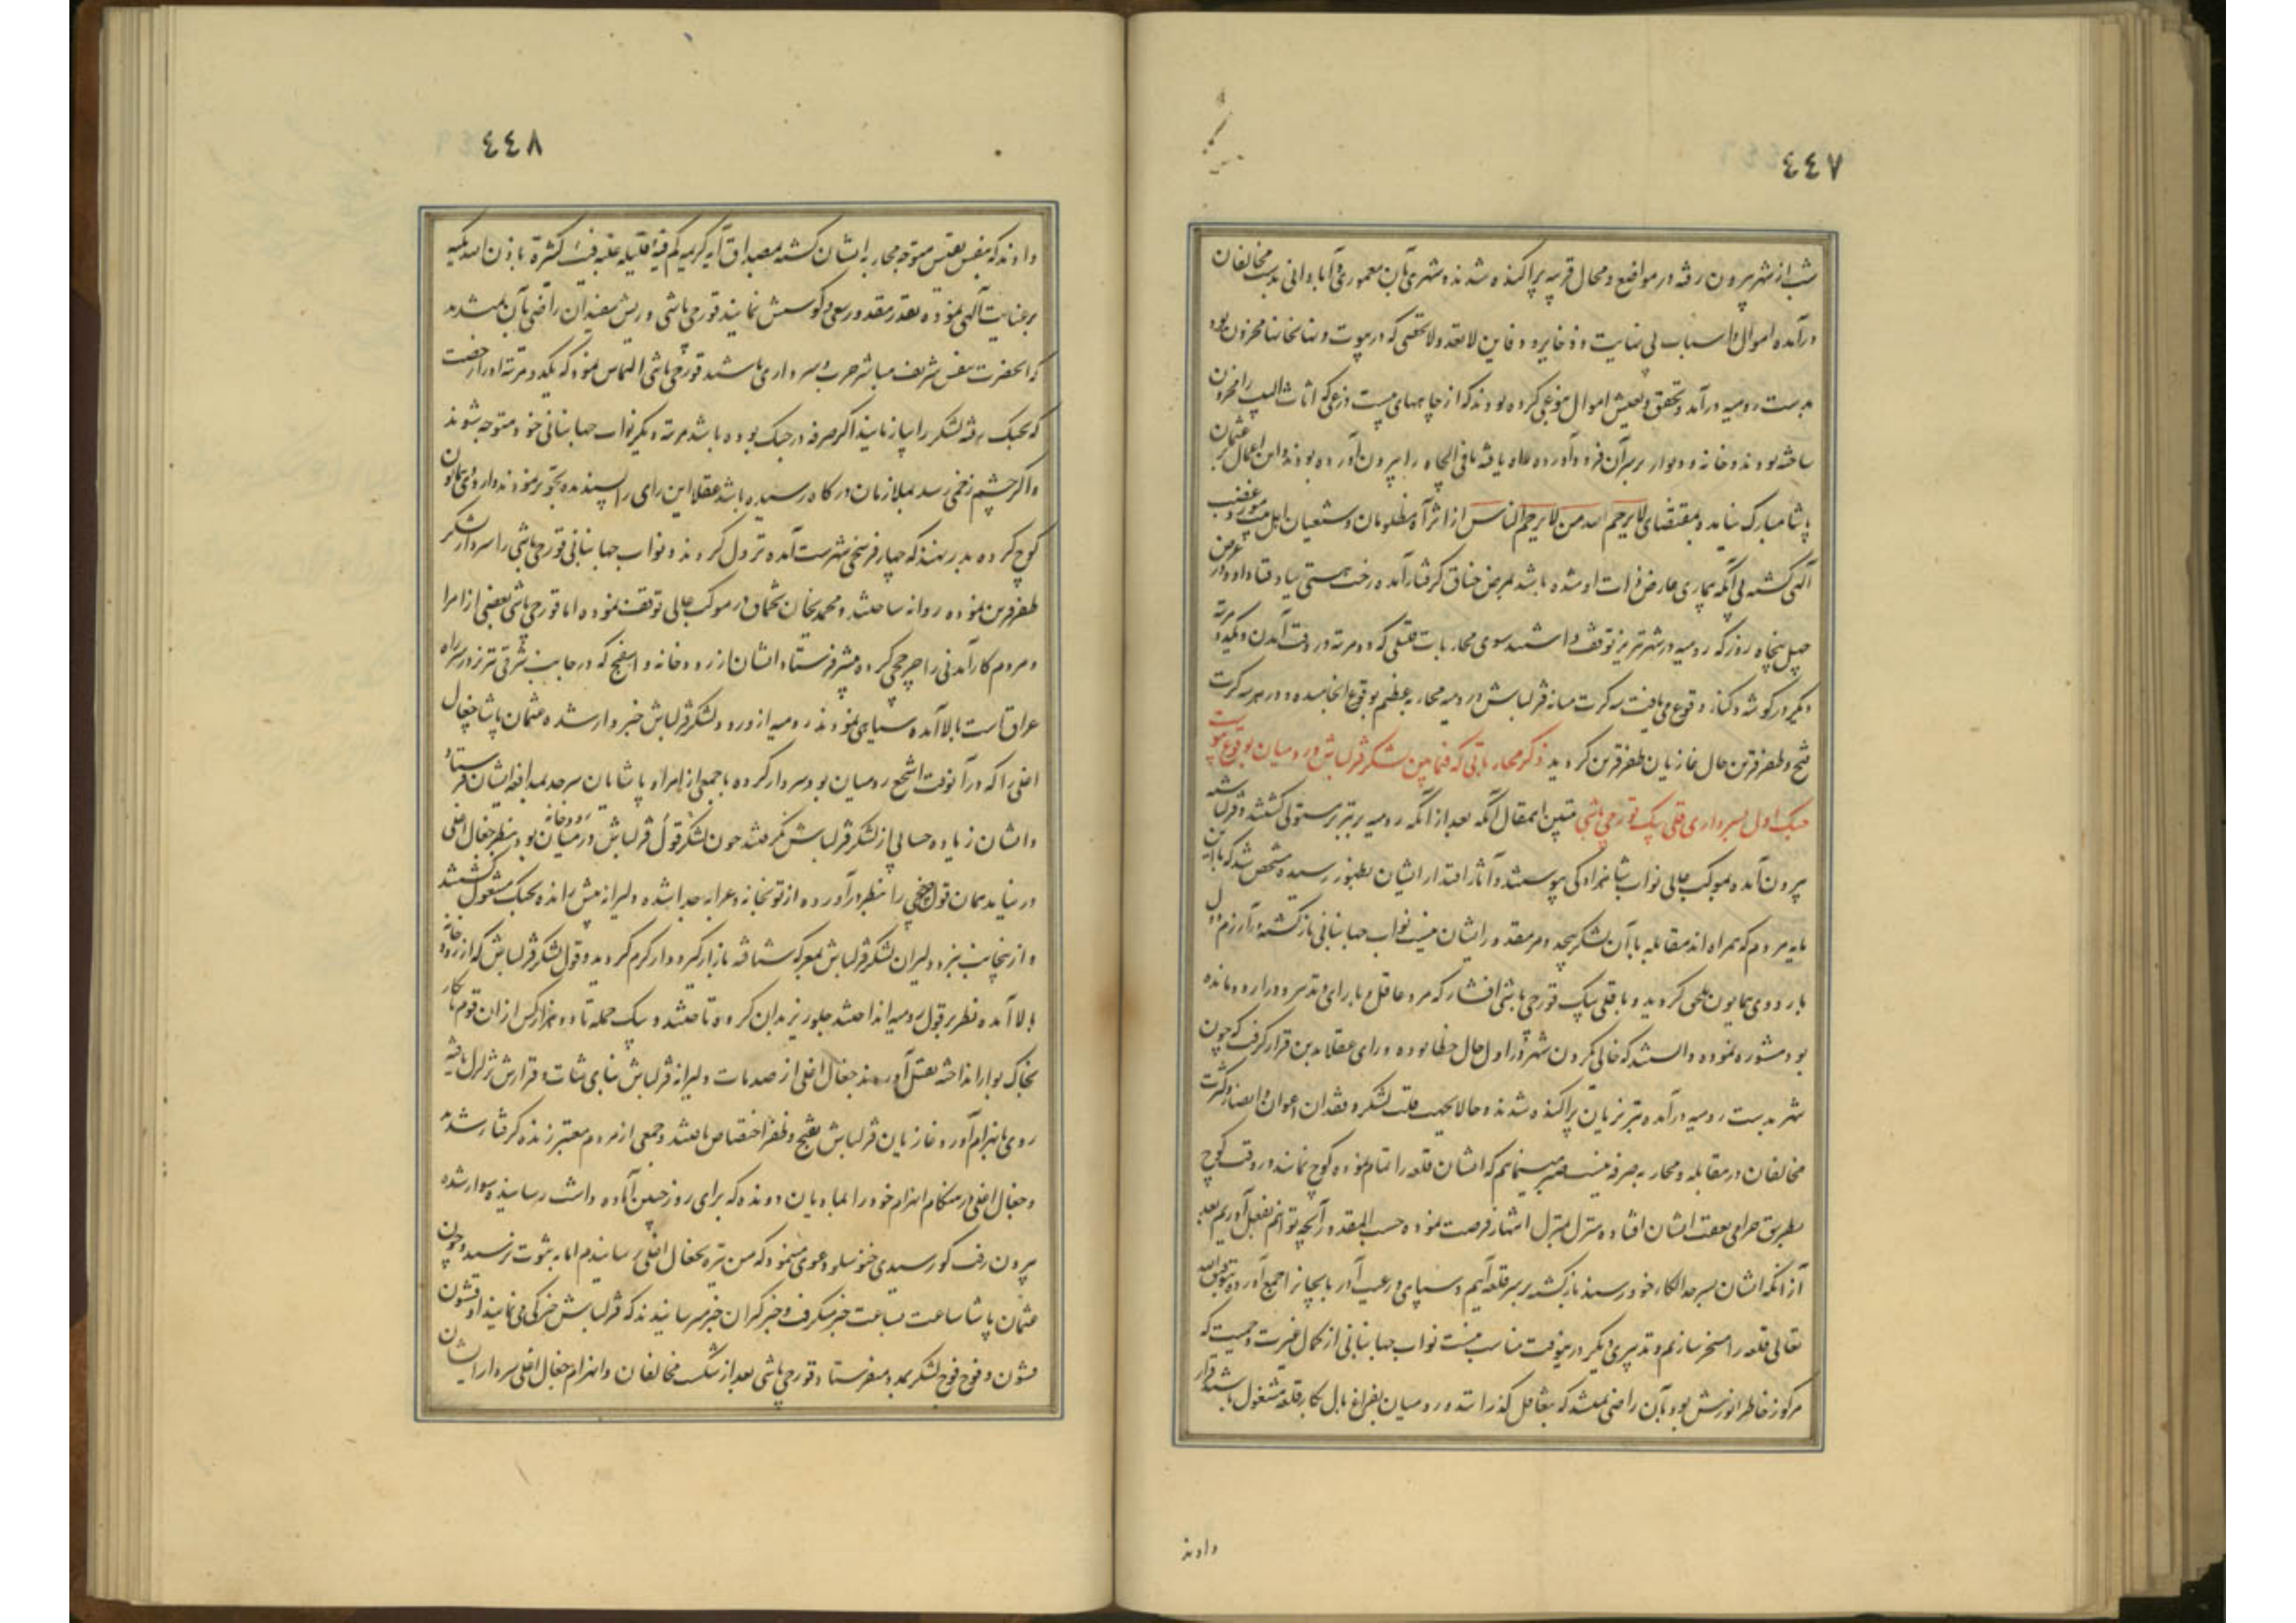 ٤٤٧
شب از شهر بیرون رفته در مواضع و محال قریبه پراکنده شدند و شهری بآن معموری و آبادانی بدست مخالفان
درآمده اموال و اسباب بی نهایت و ذخایر و دفاین لاتعد و لاتحصی که در بیوت و نهانخانها مخزون بود
بدست رومیه درآمد و تحقیق و تفتیش اموال بنوعی کرده بودند که از چاههای بیست ذرعی که اثاث البیت را مخزون
ساخته بودند و خانه و دیوار بر سر آن فرود آورده راه یافته مافی الچاه را بیرون آورده بودند و این اعمال بر عثمان
پاشا مبارک نیامد و بمقتضای لایرحم الله من لایرحم الناس از اثر آه مظلومان و شیعیان اهل بیت مورد غضب
آلهی گشته بی آنکه بیماری عارض ذات او شده باشد بمرض خناق گرفتار آمده رخت هستی بباد فنا داد و در عرض
چهل پنجاه روز که رومیه در شهر تبریز توقف داشتند سوی محاربات قتیلی که دو مرتبه در وقت آمدن و یکدو مرتبه
دیگر در گوشه و کنار وقوع می یافت سه کرت میانه قزلباش و رومیه محاربه عظیم بوقوع انجامیده و در هر سه کرت
فتح و ظفر قرین حال غازیان ظفر قرین گردید ذکر محارباتی که فیمابین لشکر قزلباش و رومیان بوقوع پیوست
جنگ اول بسرداری قلی بیک قورچی باشی تبیین المقال آنکه بعد از آنکه رومیه بر تبریز مستولی گشتند و قزلباشیه
بیرون آمده بموکب عالی نواب شاهزادگی پیوستند و آثار اقتدار ایشان بظهور رسیده مشخص شد که با این
مایه مردم که همراه اند مقابله با آن لشکر بیحد و مر مقدور ایشان نیست نواب جهانبانی بازگشته و آن روز دول
باردوی همایون ملحق گردید و با قلی بیک قورچی باشی افشار که مرد عاقل و با رای و تدبیر و در اردو مانده
بود مشوره نموده دانستند که خالی کردن شهر در اول حال خطا بوده و رای عقلا بدین قرار گرفت که چون
شهر بدست رومیه درآمده و تبریزیان پراکنده شدند و حالا بجهت قلت لشکر و فقدان اعوان و انصار و کثرت
مخالفان در مقابله و محاربه صرفه نیست صبر مینماییم که ایشان قلعه را تمام نموده کوچ نمایند و در وقت کوچ
بطریق حرامی بعقب ایشان افتاده منزل بمنزل انتهاز فرصت نموده حسب المقدور آنچه توانیم بفعل آوریم بعد
از آنکه ایشان بسرحد الکاء خود رسیدند بازگشته بر سر قلعه آییم و سپاهی و رعیت آذربایجان را جمع آورده بتوفیق الله
تعالی قلعه را مسخر سازیم و تدبیری دیگر در اینوقت مناسب نیست نواب جهانبانی از کمال غیرت و حمیت که
مرکوز خاطر انورش بود بآن راضی نمیشد که بتغافل گذرانند و رومیان بفراغ بال بکار قلعه مشغول باشند قرار
دادند
٤٤٨
دادند که بنفس نفیس متوجه محاربه ایشان گشته بمصداق آیه کریمه کم من فئة قلیله غلبت فئة کثیرة باذن الله تکیه
بر عنایت آلهی نموده بقدر مقدور سعی و کوشش نمایند قورچی باشی و ریش سفیدان راضی بآن نمیشدند
که آنحضرت بنفس شریف مباشر حرب و سرداری باشند قورچی باشی التماس نمود که یکدو مرتبه او را رخصت
که بجنگ رفته لشکر را بیازمایند اگر صرفه در جنگ بوده باشد مرتبه دیگر نواب جهانبانی خود متوجه شوند
و اگر چشم زخمی رسد بملازمان درگاه رسیده باشد عقلا این رای را پسندیده تجویز نمودند و اردوی همایون
کوچ کرده بدرهند که چهار فرسخی شهر است آمده نزول کردند و نواب جهانبانی قورچی باشی را سردار لشکر
ظفر قرین نموده روانه ساختند و محمدیخان تخماق در موکب عالی توقف نموده اما قورچی باشی بعضی از امرا
و مردم کارآمدنی را چرخچی کرده پیشتر فرستاد و ایشان از رودخانه و اسفنج که در جانب شرقی تبریز و در سر راه
عراق است بالا آمده سیاهی نمودند رومیه از ورود لشکر قزلباش خبردار شده عثمان پاشا چغال
اغلی را که در آنوقت اشجع رومیان بود سردار کرده با جمعی از امراء و پاشایان سرحد بمدافعه ایشان فرستاد
و ایشان زیاده حسابی از لشکر قزلباش نگرفتند چون لشکر قول قزلباش در میان رودخانه بود بنظر چغال اغلی
در نیامد همان قول چرخچی را بنظر درآورده از توپخانه و عرابه جدا شده دلیرانه پیش رانده بجنگ مشغول گشتند
و از اینجانب نیز دلیران لشکر قزلباش بمعرکه شتافته بازار گیرودار گرم گردید و قول لشکر قزلباش که از رودخانه
بالا آمده نظر بر قول رومیه انداختند جلو ریز بدان گروه تاختند و بیک حمله تا دو هزار کس از آن قوم نابکار
بخاک بوار انداخته بقتل آوردند چغال اغلی از صدمات دلیرانه قزلباش بنای ثبات و قرارش تزلزل یافته
روی بانهزام آورد و غازیان قزلباش بفتح و ظفر اختصاص یافتند و جمعی از مردم معتبر زنده گرفتار شدند
و چغال اغلی در هنگام انهزام خود را بمادیان دونده که برای روز چنین آماده داشت رسانیده سوار شده
بیرون رفت کور سیدی خنوسلو دعوی مینمود که من نیزه بچغال اغلی رسانیدم اما به ثبوت نرسید و چون
عثمان پاشا ساعت بساعت خبر میگرفت و خبرگیران خبر میرسانیدند که قزلباش جنگی می نمایند او قشون
قشون و فوج فوج لشکر بمدد میفرستاد قورچی باشی بعد از شکست مخالفان و انهزام چغال اغلی سردار ایشان